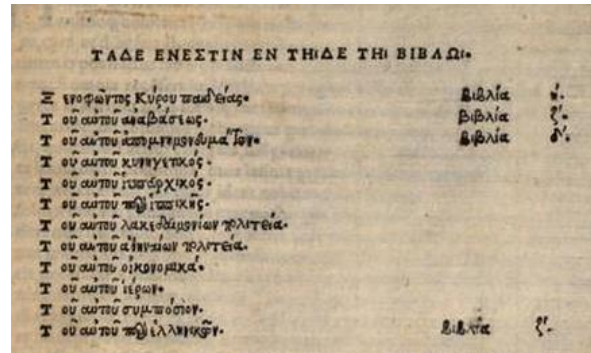 ΤΑΔΕ ΕΝΕΣΤΙΝ ΕΝ ΤΗΙΔΕ ΤΗΙ ΒΙΒΛΩΙ.
Ξ ενοφῶντος Κύρου παιδείας. βιβλία ή.
Τ οῦ αὐτοῦ ἀναβάσεως. βιβλία ζ'.
Τ οῦ αὐτοῦ ἀπομνημονευμάτων. βιβλία δ'.
Τ οῦ αὐτοῦ κυνηγετικός.
Τ οῦ αὐτοῦ ἱππαρχικός.
Τ οῦ αὐτοῦ περὶ ἱππικῆς.
Τ οῦ αὐτοῦ λακεδαιμονίων πολιτεία.
Τ οῦ αὐτοῦ ἀθηναίων πολιτεία.
Τ οῦ αὐτοῦ οἰκονομικά.
Τ οῦ αὐτοῦ ἱέρων.
Τ οῦ αὐτοῦ συμπόσιον.
Τ οῦ αὐτοῦ περὶ ἑλληνικῶν. βιβλία ζ'.